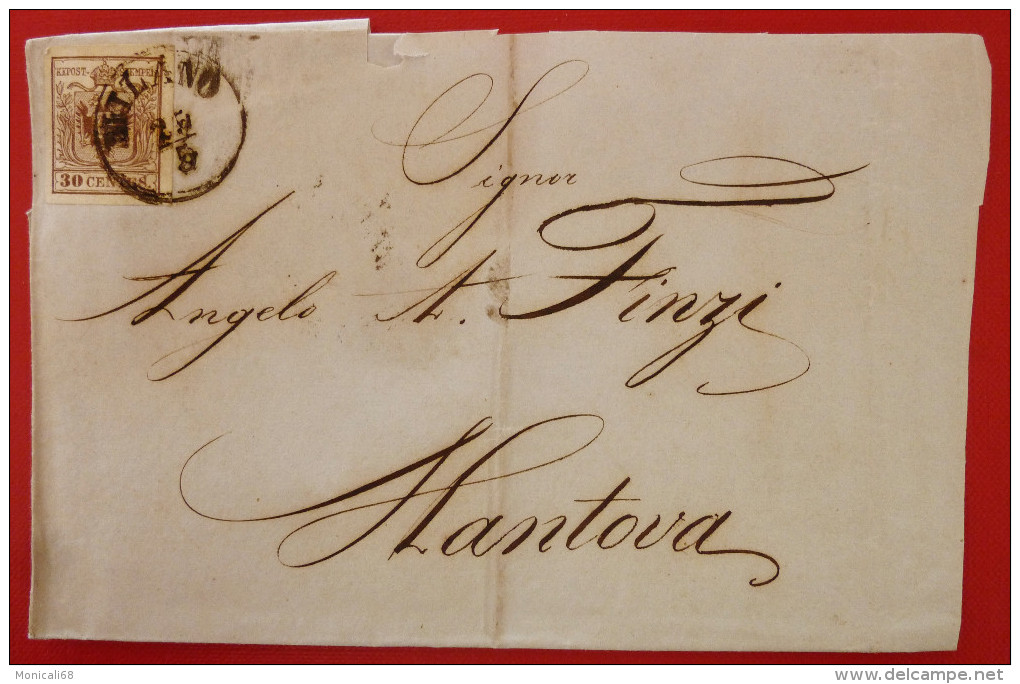 KKPOST-STEMPEL
30 CENTES.
MILANO
Signor
Angelo A. Finzi
Mantova
Monicali68
delcampe.net